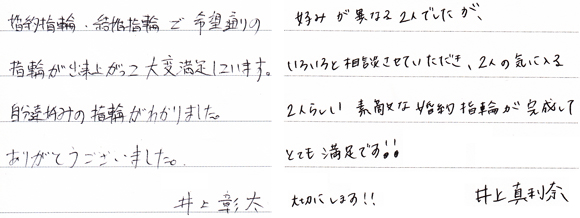 婚約指輪・結婚指輪で希望通りの
指輪が出来上がって大変満足しています。
自分達好みの指輪がわかりました。
ありがとうございました。
井上彰太
好みが異なる2人でしたが、
いろいろと相談させていただき、2人の気に入る
2人らしい素敵な婚約指輪が完成して
とても満足です!!
大切にします!!
井上真利奈